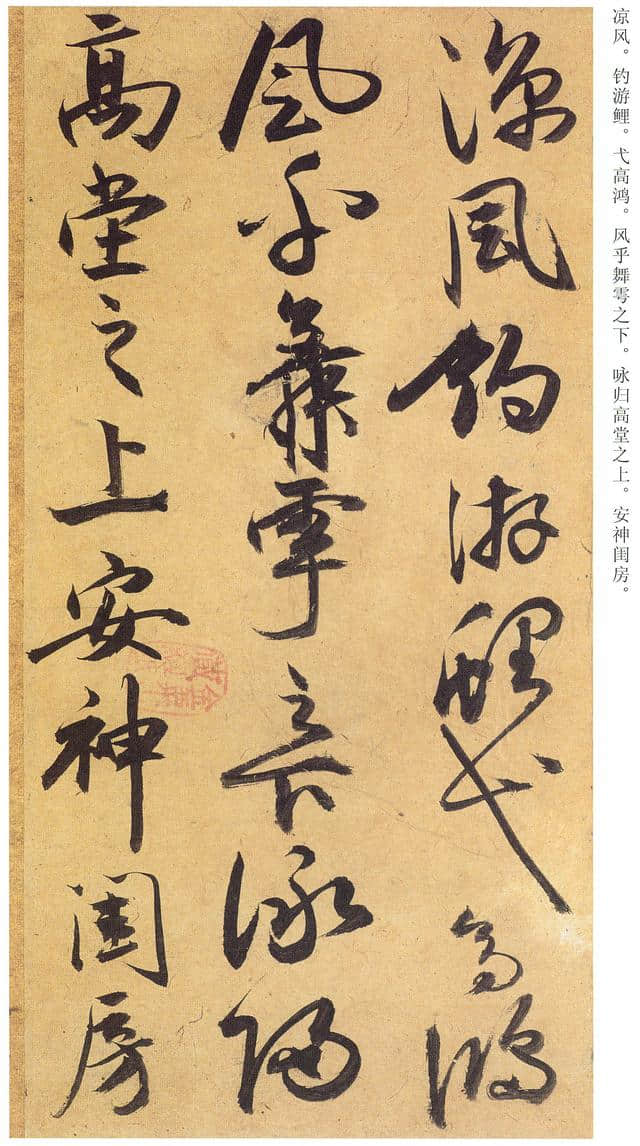 凉风。钓游鲤。弋高鸿。风乎舞雩之下。咏归高堂之上。安神闺房。
涼風釣游鯉弋高鴻
風乎舞雩之下詠歸
高堂之上安神閨房